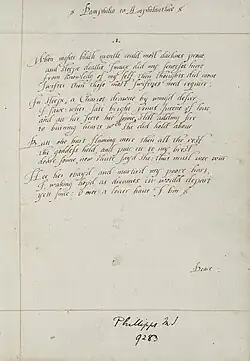 Pamphilia to Amphilanthus
1.
When nights black mantle could most darknes prove,
and sleepe deaths Image did my senceses hiere
from knowledg of my self, then thoughts did move
swifter then those most swiftnes need require:
In sleepe, a Chariot drawne by wing'd desire
I sawe: wher sate bright Venus Queene of love,
and att her feete her sonne, still adding fire
to burning hearts wch she did hold above,
Butt one hart flaming more then all the rest
the goddess held, and putt itt to my brest,
deare sonne, now shutt sayd she: thus must wee winn;
Hee her obay'd, and martir'd my poore hart,
I, waking hop'd as dreames itt would depart
yett since: O mee: a lover have I binn
Deare
Phillipps MS
9283